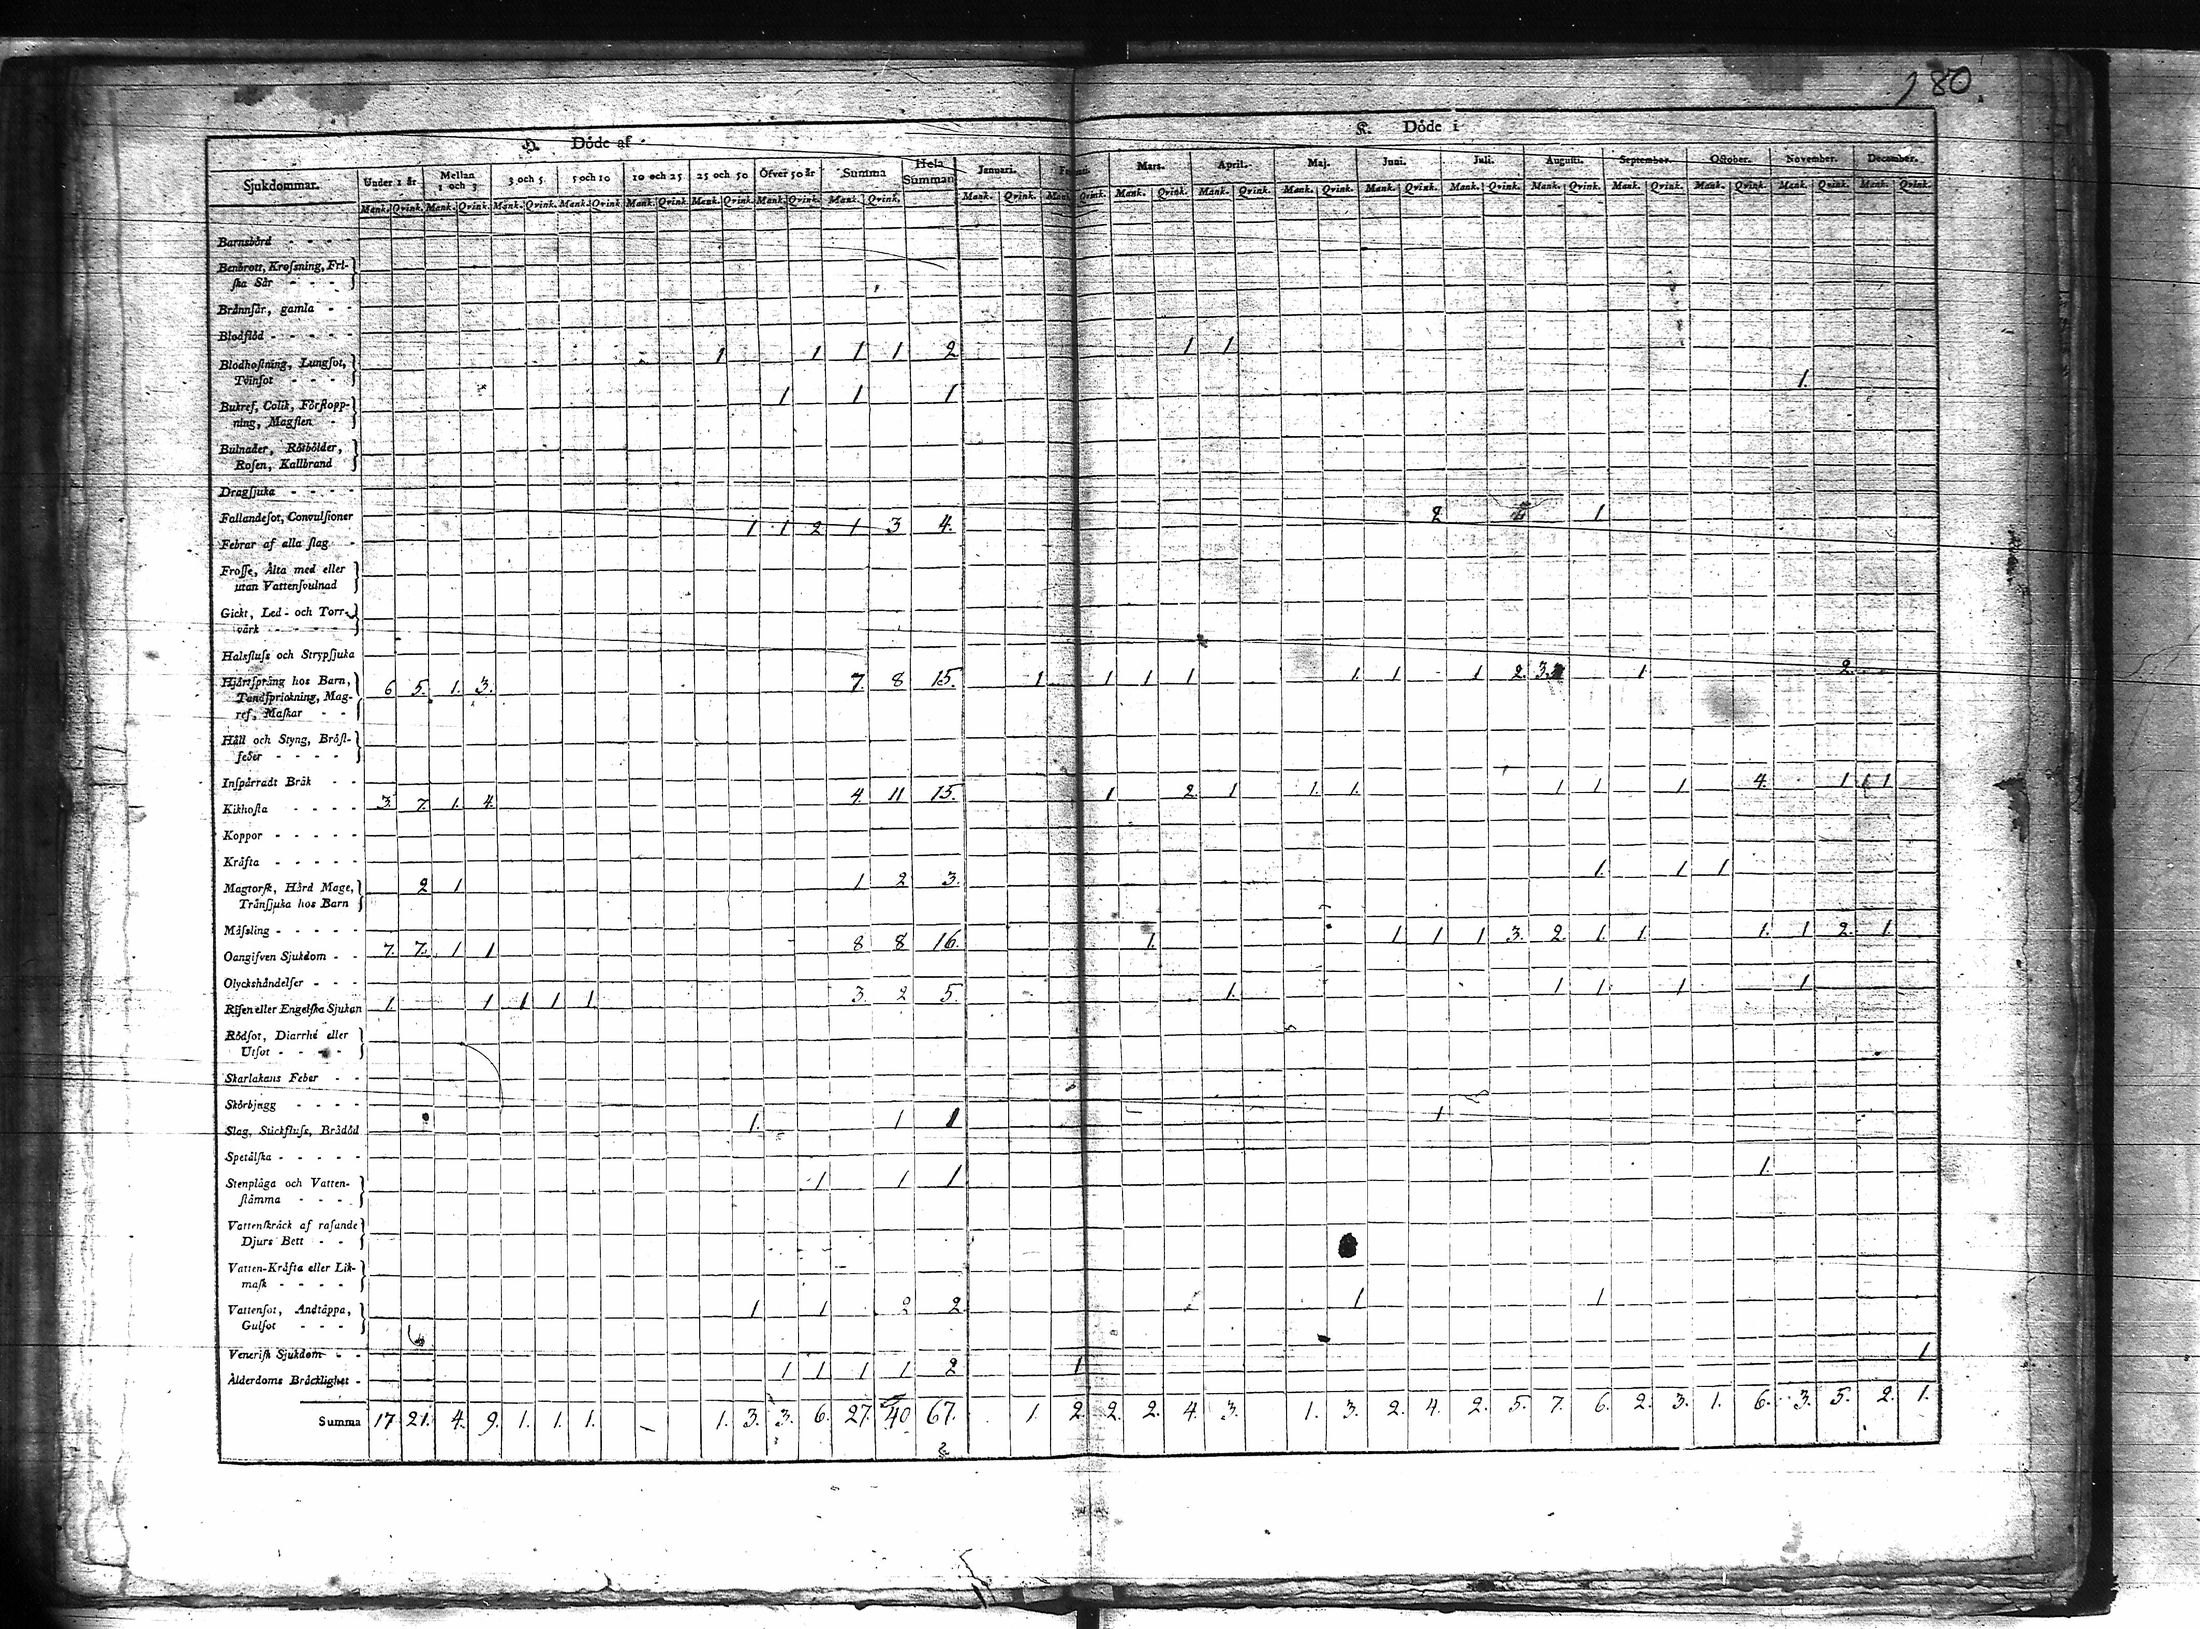 180.
Döde af
K. Döde i
Sjukdommar. Under 1 år Mellan 1 och 3 3 och 5 5 och 10 10 och 25 25 och 50 Öfver 50 år Summa Hela Summan Januari. Mars. April. Maj. Juni. Juli. Augusti. September. October. November. December.
Mank. Qvink. Mank. Qvink. Mank. Qvink. Mank. Qvink. Mank. Qvink. Mank. Qvink. Mank. Qvink. Mank. Qvink. Mank. Qvink. Mank. Qvink. Mank. Qvink. Mank. Qvink. Mank. Qvink. Mank. Qvink. Mank. Qvink. Mank. Qvink. Mank. Qvink. Mank. Qvink. Mank. Qvink. Mank. Qvink.
Barnsbörd - - - -
Benbrott, Krofsning, Fri-
ska Sår - - - -
Brännsår, gamla - -
Blodflöd - - - - -
Blodhostning, Lungsot, 1 1 1 1 2 1 1
Tvinsot - - - -
Bukref, Colik, Förstopp- 1 1 1 1.
ning, Magsten -
Bulnader, Rötbölder,
Rosen, Kallbrand
Dragsjuka - - - -
Fallandesot, Convulsioner
Febrar af alla slag - 1 1 2 1 3 4. 2 1
Frosse, Älta med eller
utan Vattensvulnad
Gickt, Led- och Torr-
värk - - - - -
Halsfluss och Strypsjuka
Hjärtsprång hos Barn, 6 5. 1. 3. 7. 8 15. 1 1 1 1 1. 1 1 2. 3. 1 2.
Tandsprickning, Mag-
ref, Maskar - -
Håll och Styng, Bröst-
feber - - - -
Inspärradt Bråk - -
Kikhosta - - - - 3. 7. 1. 4. 4. 11 15. 1 2. 1 1. 1. 1 1 1 4. 1 1 1
Koppor - - - - -
Kräfta - - - - -
Magtorsk, Hård Mage, 2 1 1 2 3. 1. 1 1
Trånsjuka hos Barn
Mässling - - - - -
Oangifven Sjukdom - - 7. 7. 1 1 8 8 16. 1. 1 1 1 3. 2. 1. 1. 1. 1 2. 1.
Olyckshändelser - - -
Risen eller Engelska Sjukan 1. 1 1 1 1 3. 2 5. 1. 1 1 1 1
Rödsot, Diarrhé eller
Utsot - - - -
Skarlakans Feber - -
Skörbjugg - - - -
Slag, Stickfluss, Brådöd 1. 1 1 1
Spetälska - - - - -
Stenplåga och Vatten- 1 1 1 1.
stämma - - - -
Vattenskräck af rasande
Djurs Bett - -
Vatten-Kräfta eller Lik-
mask - - - -
Vattensot, Andtäppa, 1 1 2 2 1 1
Gulsot - - -
Venerisk Sjukdom - -
Ålderdoms Bräcklighet - 1 1 1 1 2 1 1
Summa 17 21. 4. 9. 1. 1. 1. - 1. 3. 3. 6. 27. 40 67. 1. 2. 2. 2. 4. 3. 1. 3. 2. 4. 2. 5. 7. 6. 2. 3. 1. 6. 3. 5. 2. 1.